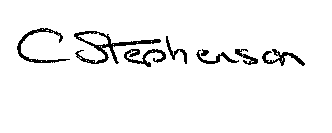 C Stephenson